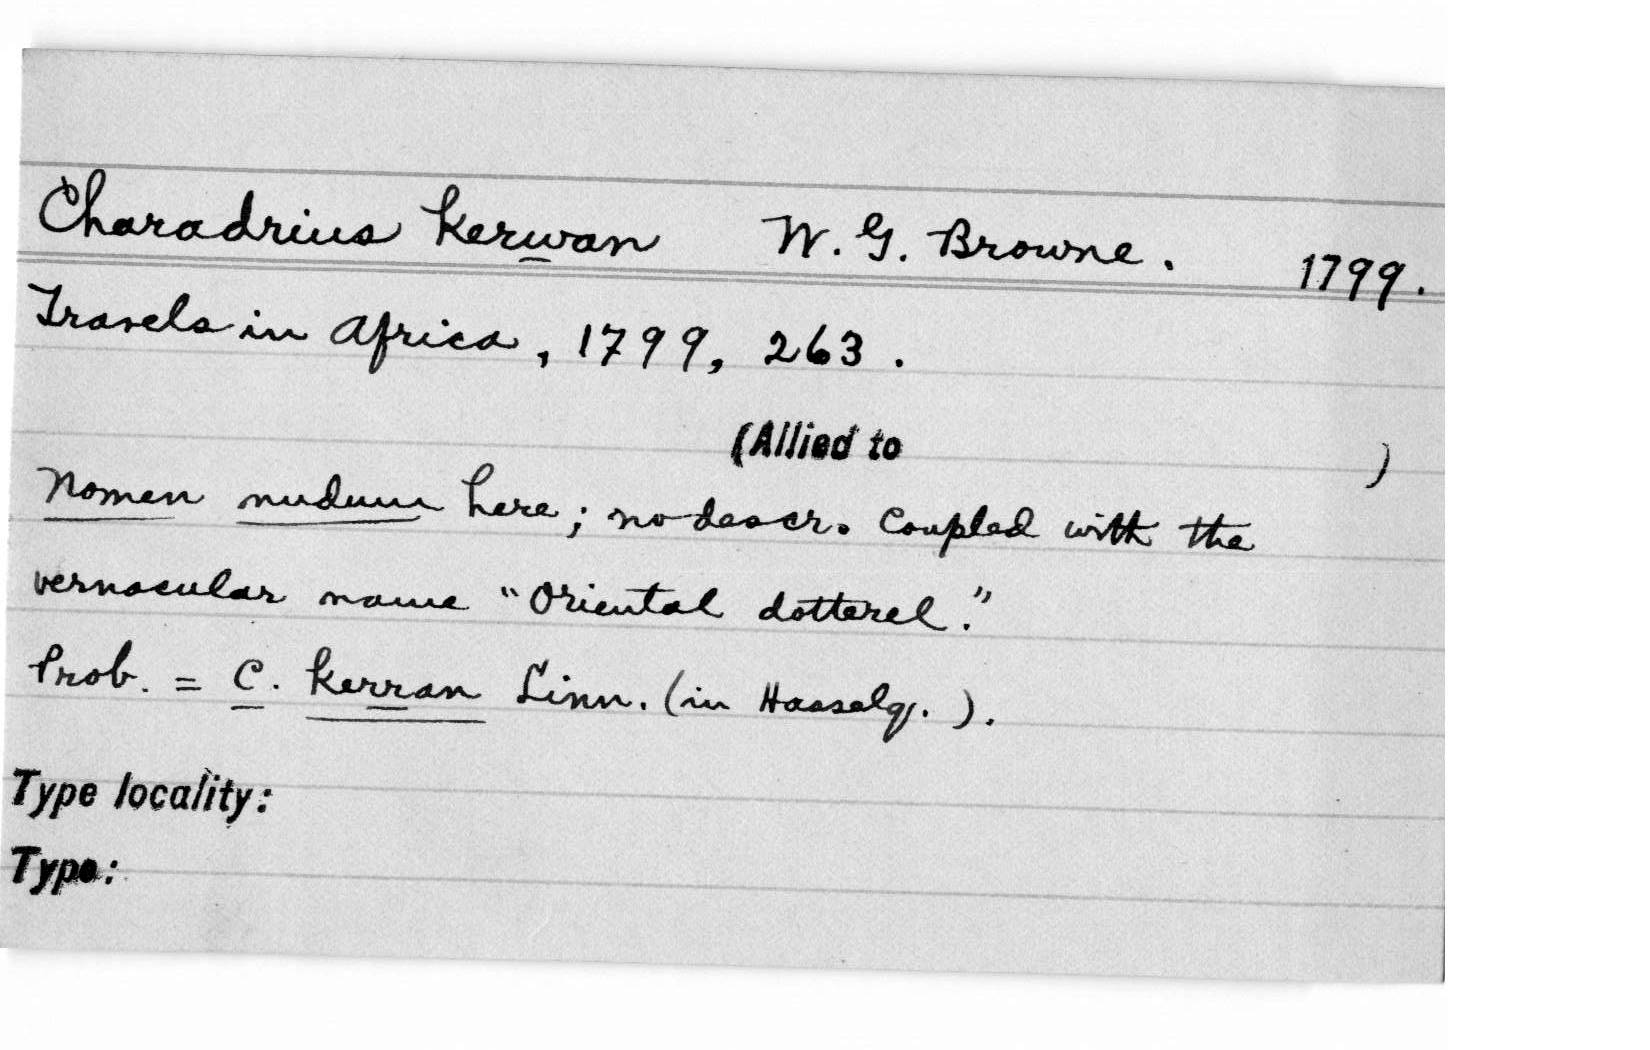 Charadrius kerwan W. G. Browne. 1799.
Travels in Africa, 1799, 263.
(Allied to )
Nomen nudum here; no descr. Coupled with the
vernacular name "Oriental dotterel."
Prob. = C. kerran Linn. (in Hasselq.).
Type locality:
Type: